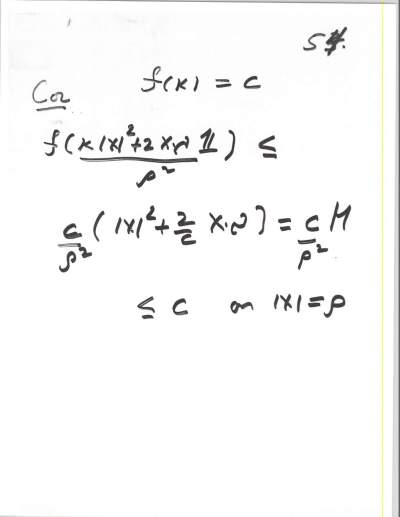 54.
Cor f(x) = c
f(x|x|²+2x·ν 1) ≤
ρ²
c/ρ² (|x|²+2/c x·ν) = c/ρ² M
≤ c on |x|=ρ